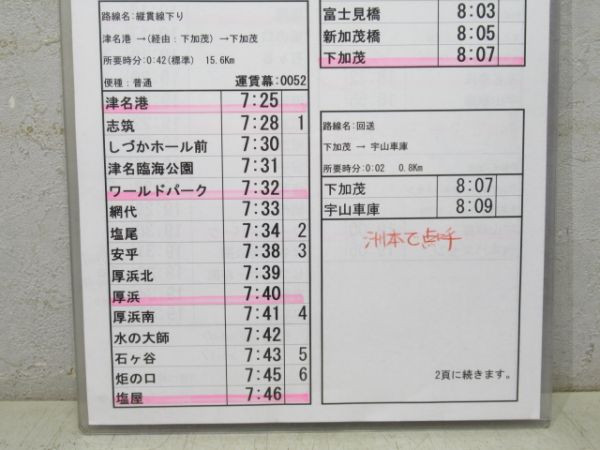 路線名:縦貫線下り
津名港 →(経由:下加茂) →下加茂
所要時分:0:42(標準) 15.6Km
便種:普通 運賃幕:0052
津名港 7:25
志筑 7:28 1
しづかホール前 7:30
津名臨海公園 7:31
ワールドパーク 7:32
網代 7:33
塩尾 7:34 2
安乎 7:38 3
厚浜北 7:39
厚浜 7:40
厚浜南 7:41 4
水の大師 7:42
石ヶ谷 7:43 5
炬の口 7:45 6
塩屋 7:46
富士見橋 8:03
新加茂橋 8:05
下加茂 8:07
路線名:回送
下加茂 → 宇山車庫
所要時分:0:02 0.8Km
下加茂 8:07
宇山車庫 8:09
洲本で点呼
2頁に続きます。